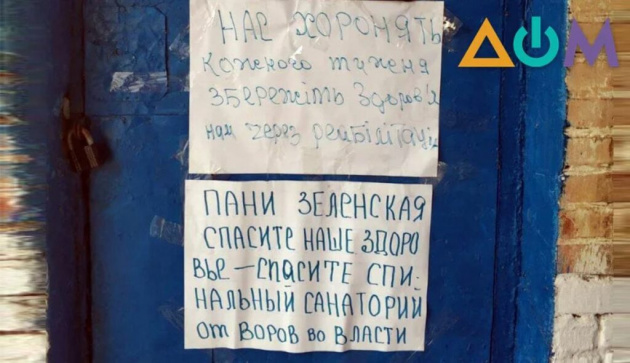 ДОМ
НАС ХОРОНЯТЬ
кожного тиженя
збережіть здоров'я
нам через реабілітацію
ПАНИ ЗЕЛЕНСКАЯ
СПАСИТЕ НАШЕ ЗДОРО
ВЬЕ — СПАСИТЕ СПИ-
НАЛЬНЫЙ САНАТОРИЙ
ОТ ВОРОВ ВО ВЛАСТИ